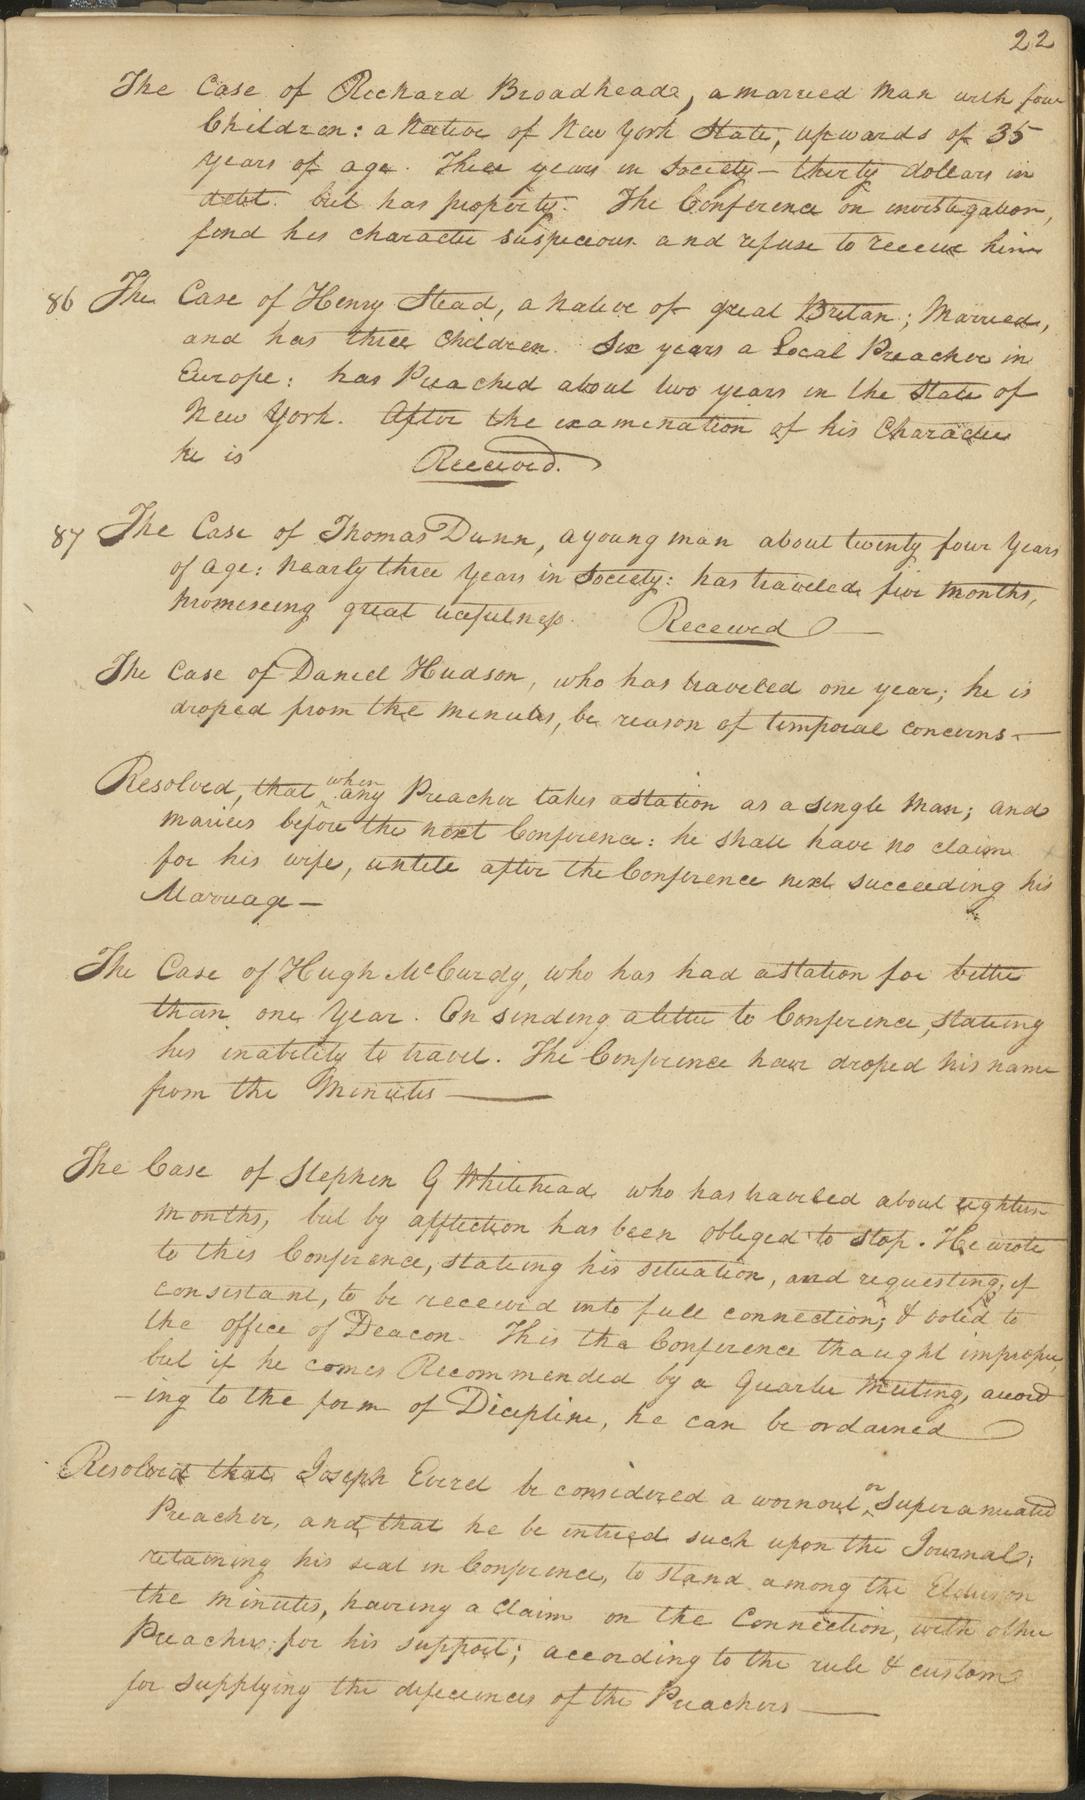 22
The Case of Richard Broadheade, a married Man with four
Children: a Native of New York State, upwards of 35
years of age. Three years in Society – thirty dollars in
debt. but has property. The Conference on investigation,
find his character suspicious and refuse to receive him
86 The Case of Henry Stead, a Native of great Britan; Married,
and has three Children. Six years a Local Preacher in
Europe: has Preached about two years in the State of
New York. After the examination of his Character
he is Received.
87 The Case of Thomas Dunn, a young man about twenty four Years
of age: nearly three Years in Society: has traveled five months,
promiseing great usefulness. Received —
The Case of Daniel Hudson, who has traveled one year; he is
droped from the minutes, be reason of temporal concerns —
Resolved, that when any Preacher takes a station as a single Man; and
marries before the next Conference: he shall have no claim
for his wife, untile after the Conference next succeeding his
Marriage —
The Case of Hugh McCurdy, who has had a station for better
than one Year. On sending a letter to Conference, stateing
his inability to travel. The Conference have droped his name
from the Minutes —
The Case of Stephen G Whitehead who has traveled about eighteen
months, but by affliction has been obliged to stop. He wrote
to this Conference, stateing his situation, and requesting, if
consistant, to be received into full connection; & voted to
the office of Deacon. This the Conference thought improper,
but if he comes Recommended by a Quarter Meeting, accord
-ing to the form of Dicipline, he can be ordained
Resolved that Joseph Everel be considered a wornout or Superanuated
Preacher, and that he be entred such upon the Journal;
retaining his seat in Conference, to stand among the Elders on
the minutes, having a claim on the Connection, with other
Preachers, for his support; according to the rule & custom
for supplying the defeciences of the Preachers —